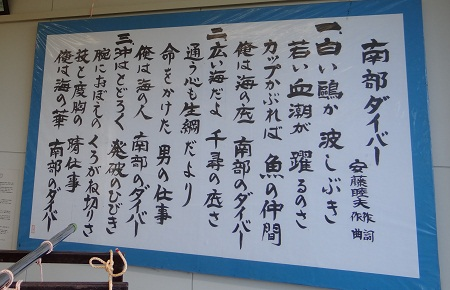 南部ダイバー
安藤睦夫 作詞
作曲
一、白い鴎か 波しぶき
若い血潮が 躍るのさ
カップかぶれば 魚の仲間
俺は海の底 南部のダイバー
二、広い海だよ 千尋の底さ
通う心も生綱だより
命をかけた 男の仕事
俺は海の人 南部のダイバー
三、沖はとどろく 発破のひびき
腕におぼえの くろがね切りさ
技と度胸の 晴仕事
俺は海の華 南部のダイバー